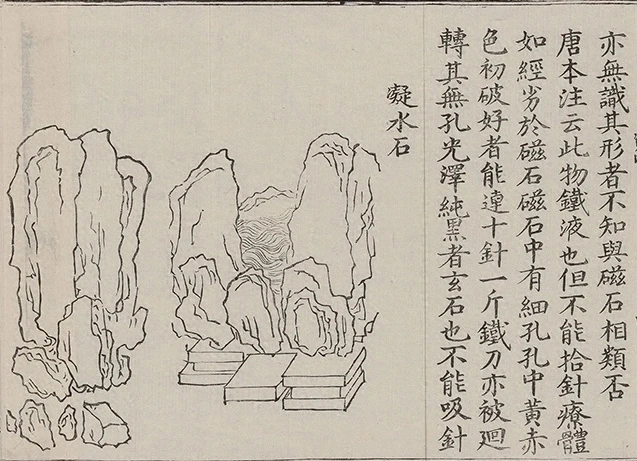 亦無識其形者不知與磁石相類否
唐本注云此物鐵液也但不能拾針療體
如經劣於磁石磁石中有細孔孔中黃赤
色初破好者能連十針一斤鐵刀亦被廻
轉其無孔光澤純黑者玄石也不能吸針
凝水石